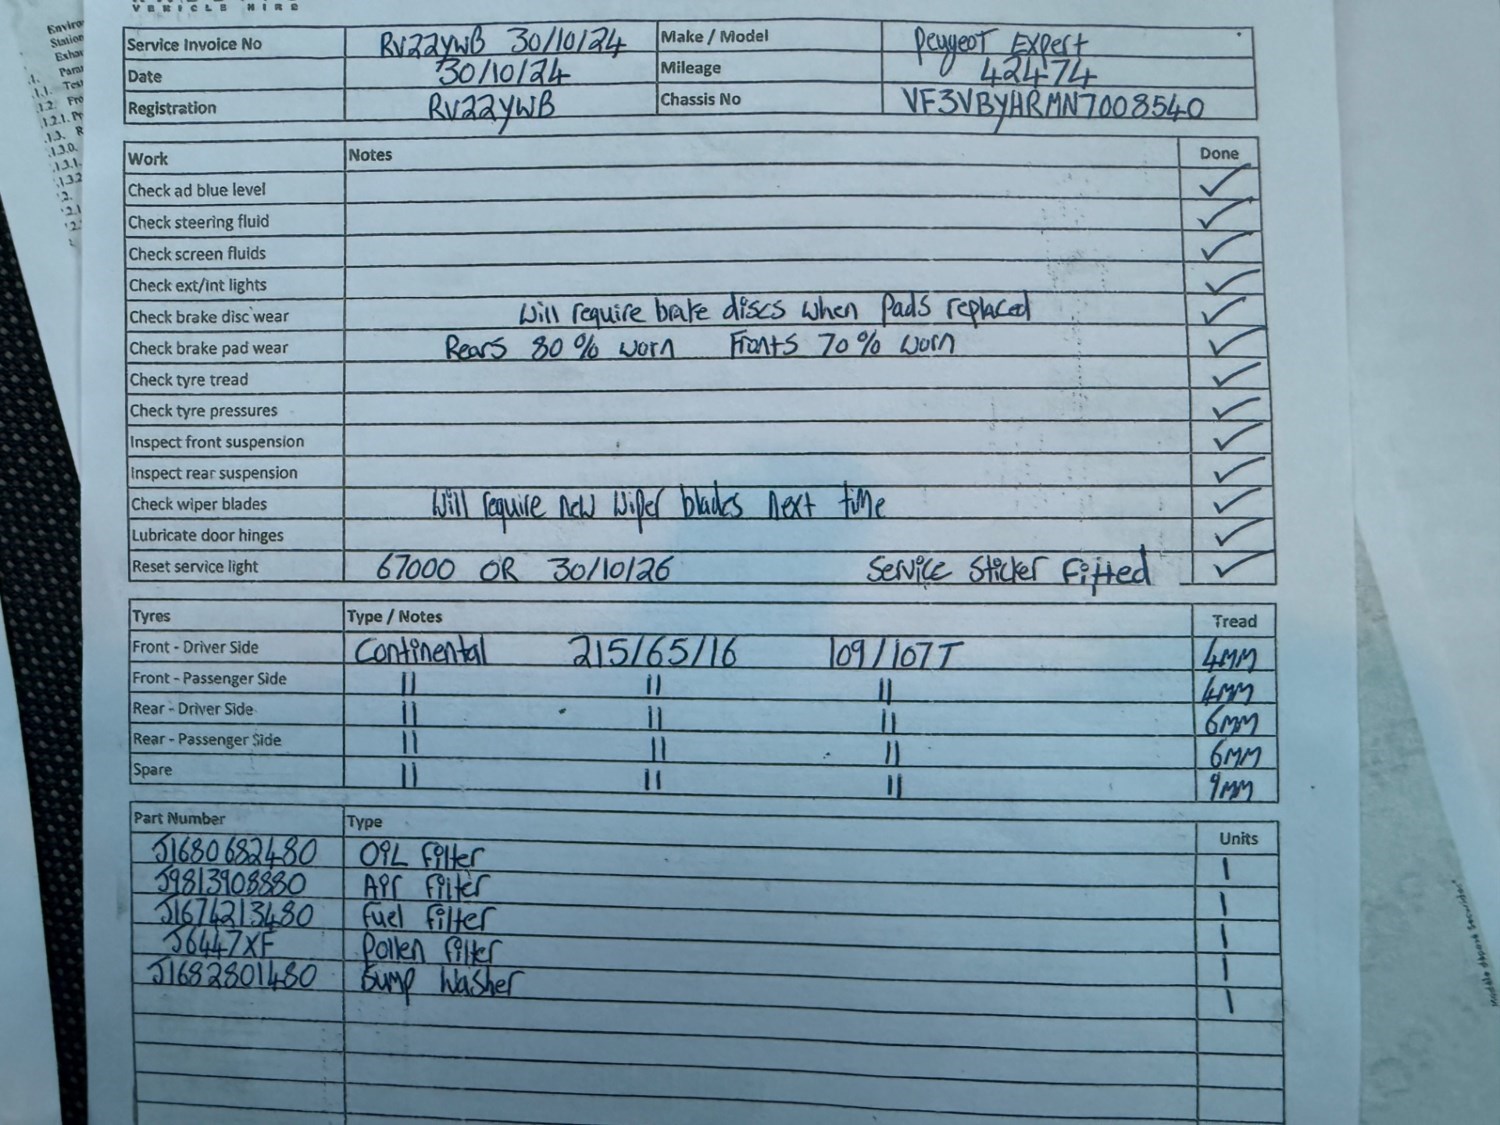 VEHICLE HIRE
Service Invoice No RV22YWB 30/10/24 Make / Model Peugeot Expert
Date 30/10/24 Mileage 42474
Registration RV22YWB Chassis No VF3VBYHRMN7008540
Work Notes Done
Check ad blue level ✓
Check steering fluid ✓
Check screen fluids ✓
Check ext/int lights ✓
Check brake disc wear Will require brake discs when Pads replaced ✓
Check brake pad wear Rears 80% worn Fronts 70% worn ✓
Check tyre tread ✓
Check tyre pressures ✓
Inspect front suspension ✓
Inspect rear suspension ✓
Check wiper blades Will require new Wiper blades next time ✓
Lubricate door hinges ✓
Reset service light 67000 OR 30/10/26 Service Sticker Fitted ✓
Tyres Type / Notes Tread
Front - Driver Side Continental 215/65/16 109/107T 4MM
Front - Passenger Side || || || 4MM
Rear - Driver Side || || || 6MM
Rear - Passenger Side || || || 6MM
Spare || || || 9MM
Part Number Type Units
J1680682480 OiL Filter 1
J9813908880 Air filter 1
J1674213480 fuel filter 1
J6447XF Pollen filter 1
J1682801480 Sump Washer 1
Enviro
Station
Exhau
.1. Para
.1.1. Tes
1.2. Pro
1.2.1. Pr
.1.3. R
.1.3.0.
.1.3.1.
.1.3.2
.2.